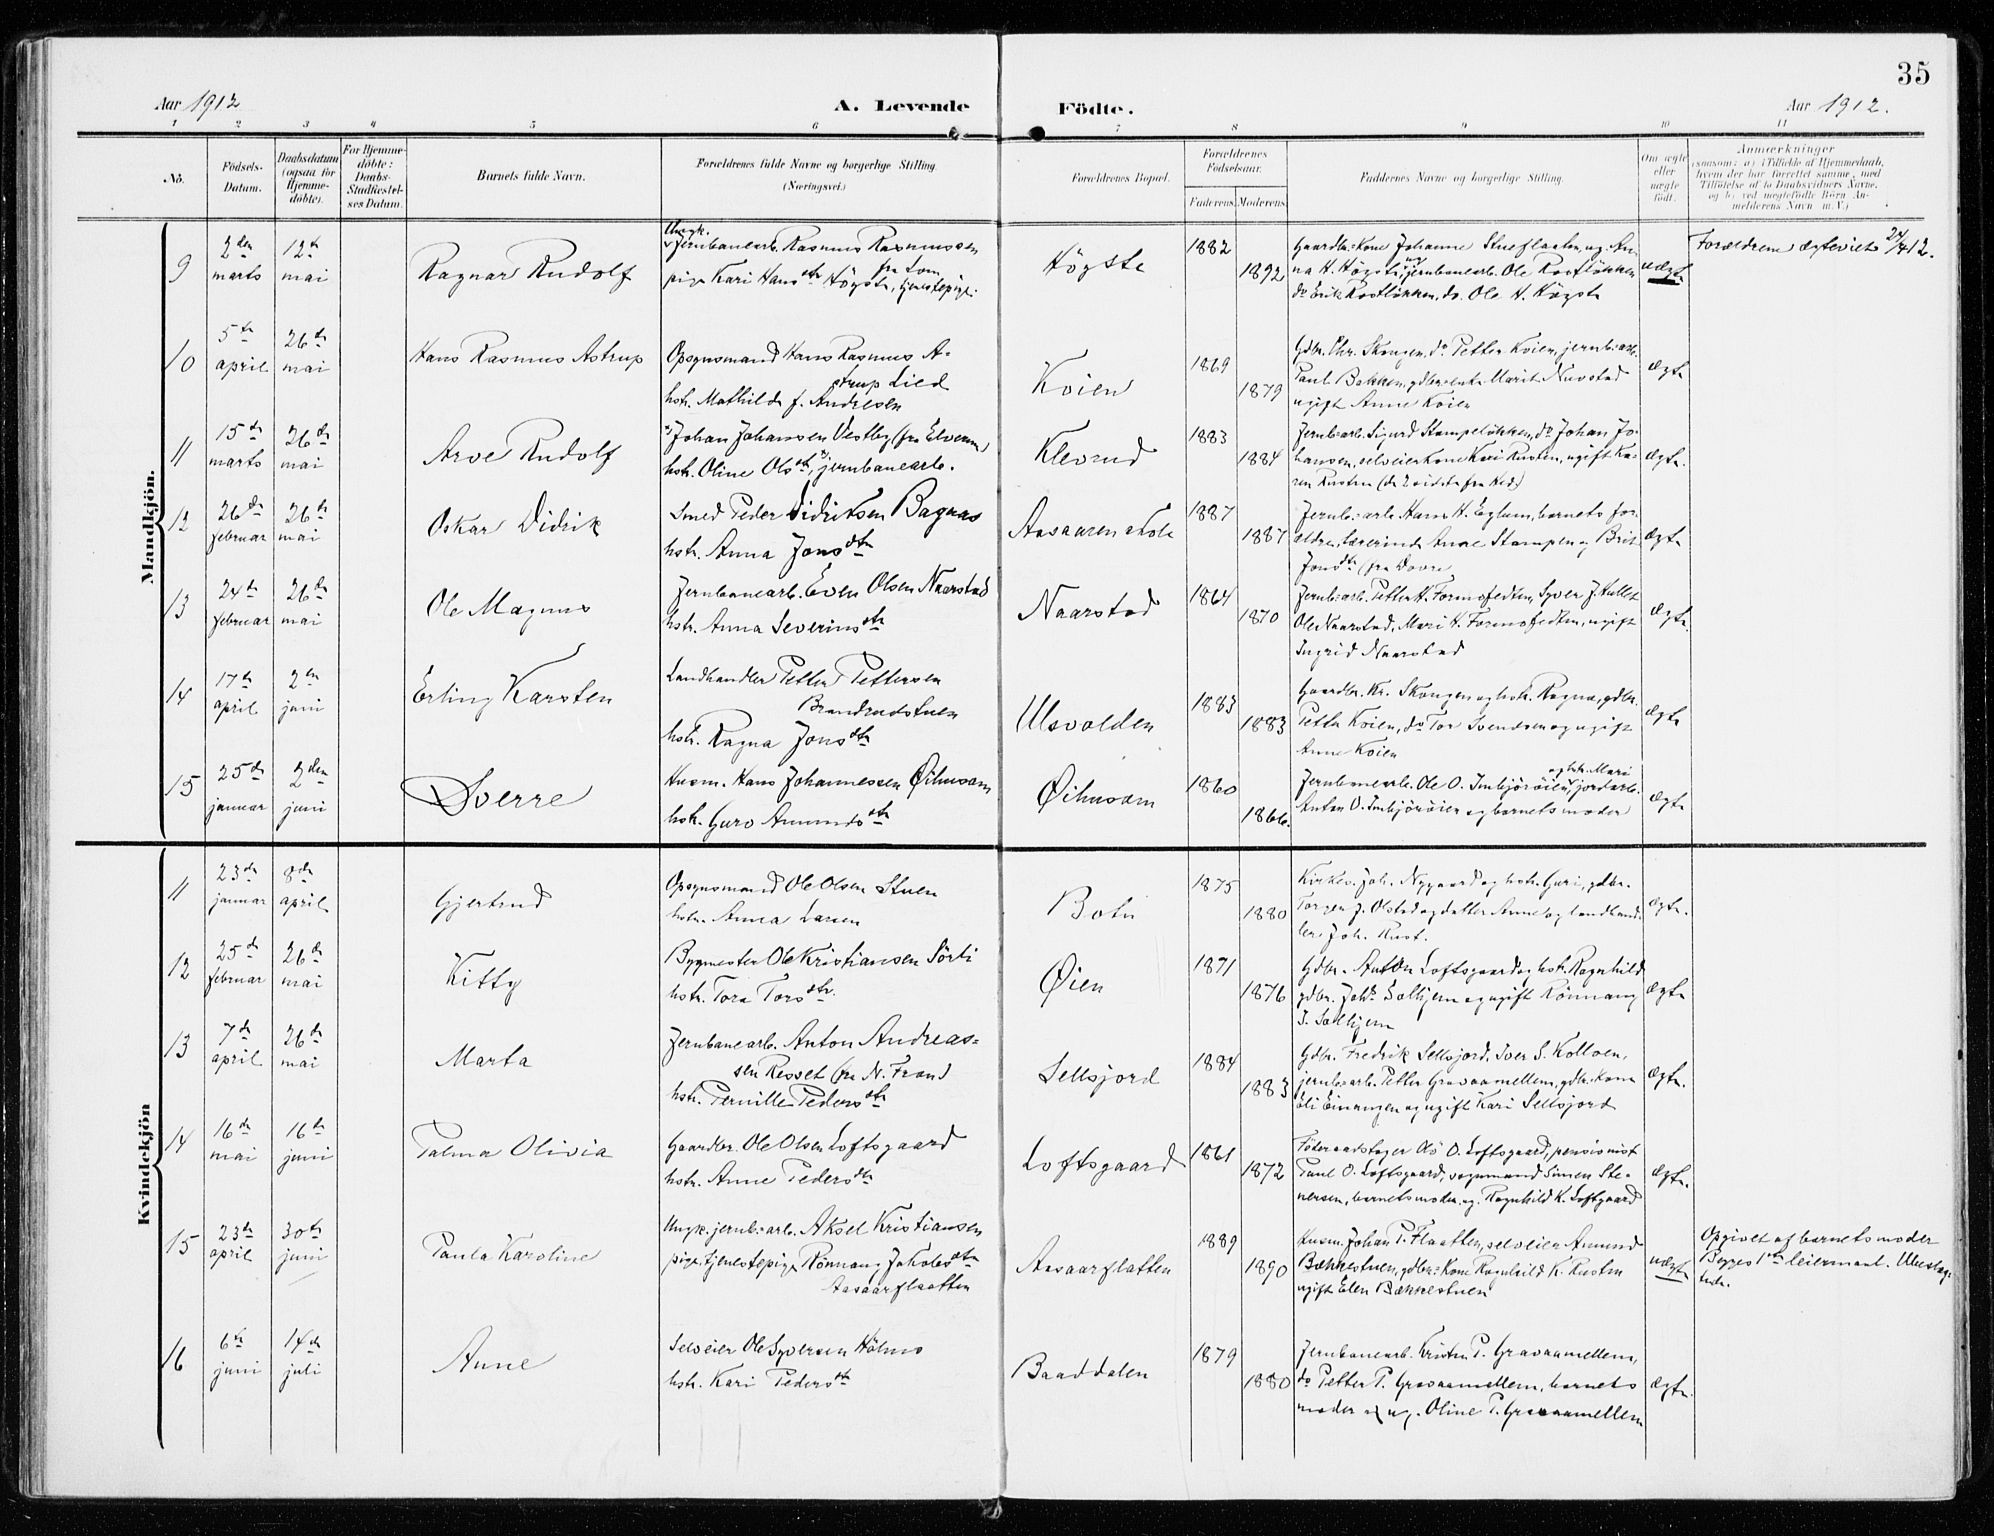 35
Aar 1912
A. Levende
Födte.
Aar 1912.
1 2 3 4 5 6 7 8 9 10 11
No.
Födsels-
Datum.
Daabsdatum
(ogsaa for
Hjemme-
döbte).
For Hjemme-
döbte:
Daabs-
Stadfæstel-
ses Datum.
Barnets fulde Navn.
Forældrenes fulde Navne og borgerlige Stilling.
(Næringsvei.)
Forældrenes Bopæl.
Forældrenes
Födselsaar.
Faderens.
Moderens.
Faddernes Navne og borgerlige Stilling.
Om ægte
eller
uægte
födt.
Anmærkninger
(saasom: a) i Tilfælde af Hjemmedaab,
hvem der har forrettet samme, med
Tilföielse af to Daabsvidners Navne,
og b) ved uægtefödte Börn An-
melderens Navn m. V.)
Mandkjön.
9
2den
marts
12te
mai
Ragnar Rudolf
Ungk.
Jernbanearb. Rasmus Rasmussen
fra Lom
pige Kari Hansdtr Högste, tjenestepige.
Högste
1882
1892
Gaardbr.kone Johanne Stueflaaten, ug. An-
na H. Högste, og jernbanearb. Ole Rostløkken
do Erik Rostløkken, do. Ole H. Högste
uægte
Forældrene ægteviet 24/4 12.
10
5te
april
26de
mai
Hans Rasmus Astrup
Opsynsmand Hans Rasmus A-
strup Lied
hstr. Mathilde f. Andresen
Koien
1869
1879
Gdbr. Chr. Skougen, do Petter Koien, jernb.arb.
Paul Bakken, gdbr.enke Marit Nustad
ugift Anne Koien
ægte
11
15de
marts
26de
mai
Arve Rudolf
Johan Johansen Vestby (fra Elverum)
hstr. Oline Olsdtr, jernbanearb.
Klevrud
1883
1884
Jernb.arb. Sigurd Stampeløkken, do Johan Jo-
hansen, selveierkone Kari Rusten, ugift Ka-
ren Rusten
ægte.
12
26de
februar
26de
mai
Oskar Didrik
Smed Peder Didriksen Bagaas
hstr. Anna Jonsdtr
1887
1887
Jernb.arb. Hans H. Eglum, barnets for-
ældre, lærerinde Anne Stampen og Brit
Jonsdtr (fra Dovre
ægte
13
24de
februar
26de
mai
Ole Magnus
Jernbanearb. Even Olsen Naarstad
hstr. Anna Severinsdtr
Naarstad
1864
1870
Jernb.arb. Petter H. Formofedten, Syver J. Hullet
Ole Naarstad, Mari H. Formofedten, ugift
Ingrid Naarstad
ægte.
14
17de
april
2den
juni
Erling Karsten
Landhandler Petter Pettersen
Brandrudstuen
hstr. Ragna Jonsdtr
Ulsvolden
1883
1883
Gaardbr. Kr. Skougen og hstr. Ragna, gdbr.
Petter Koien, do Tor Svendsen og ugift
Anne Koien
ægte
15
25de
januar
2den
juni
Sverre
Husm. Hans Johannessen Øihusom
hstr. Guro Amundsdtr
Øihusom
1860
1866.
Jernbanearb. Ole O. Imbjörøien og hstr. Mari, jordarb.
Anton O. Imbjörøien og barnets moder
ægte
Kvindekjön
11
23de
januar
8de
april
Gjertrud
Opsynsmand Ole Olsen Stuen
hstr. Anna Larsen
Botn
1875
1880
Kirkes. Joh. Nygaard og hstr. Guri, gdbr.
Torgeir J. Olstad og datter Anne og landhand-
ler Joh. Rust.
ægte.
12
25de
februar
26de
mai
Kitty
Bygmester Ole Kristiansen Sörli
hstr. Tora Torsdtr.
Øien
1871
1876
Gdbr. Anton Loftsgaard og hstr. Ragnhild
gdbr. Johs Solhjem og ugift Rönnaug
J. Solhjem
ægte
13
7de
april
26de
mai
Marta
Jernbanearb. Anton Andreas-
sen Resset (fra N. Fron)
hstr. Pernille Pedersdtr
Sellsjord
1884
1883
Gdbr. Fredrik Sellsjord, Iver S. Kolloen,
jernb.arb. Petter Gravaamellem, gdbr.kone
Eli Einangen og ugift Kari Sellsjord
ægte.
14
16de
mai
16de
juni
Palma Olivia
Gaardbr. Ole Olsen Loftsgaard
hstr. Anne Pedersdtr
Loftsgaard
1861
1872
Föderaadstager O. Loftsgaard, pensionist
Paul O. Loftsgaard, sogemand Simen Ste-
nersen, barnets moder, ug. Ragnhild K. Loftgaard
ægte.
15
23de
april
30te
juni
Paula Karoline
Ungk. jernb.arb. Aksel Kristiansen
pige, tjenestepige Rönnaug Jakobsdtr
Aasaarflaatten
Aasaarflatten
1889
1890
Husm. Johan P. Flaatten, selveier Amund
Bækkestuen, gdbr.kone Ragnhild K. Rusten
ugift Elen Bækkestuen
uægte
Opgivet af barnets moder
Begges 1ste leiermaal. Ubeslæg-
tede.
16
6te
juni
14de
juli
Anne
Selveier Ole Syversen Hölmo
hstr. Kari Pedersdtr
Baaddalen
1879
1880
Jernbanearb. Kristen P. Gravaamellem,
do Petter P. Gravaamellem, barnets
moder og ug. Oline P. Gravaamellem
ægte.